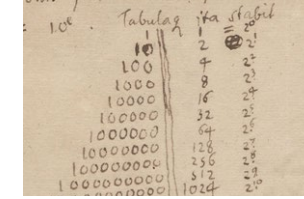 10^e. Tabula ita stabit
1 1 = 2^0
10 2 2^1
100 4 2^2
1000 8 2^3
10000 16 2^4
100000 32 2^5
1000000 64 2^6
10000000 128 2^7
100000000 256 2^8
1000000000 512 2^9
1024 2^10